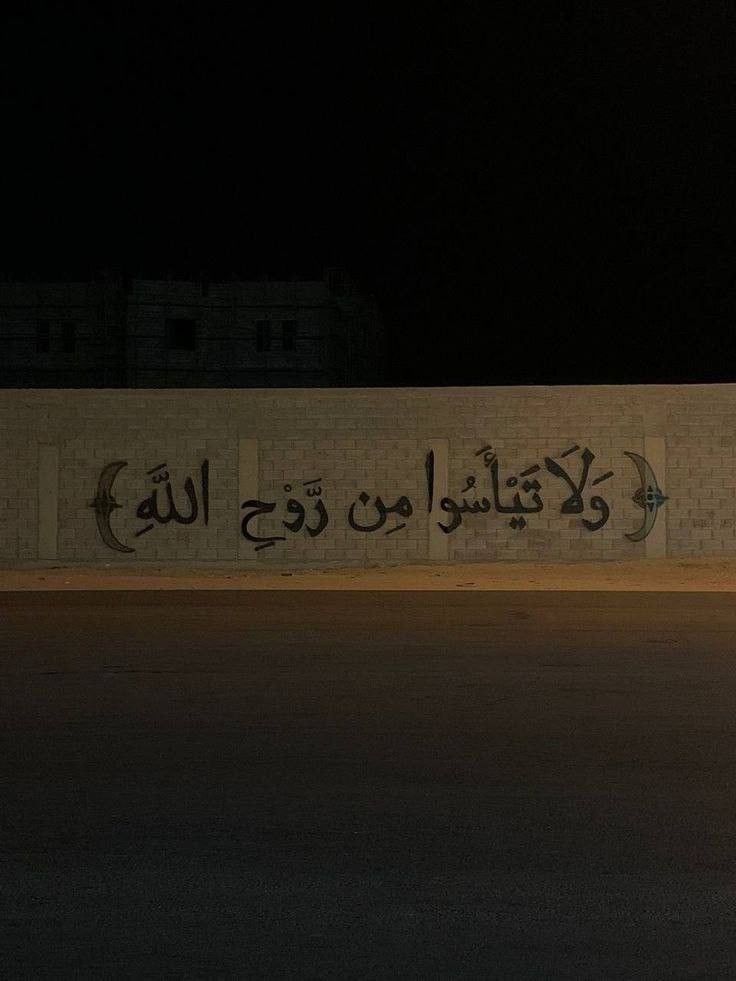 ﴿وَلَا تَيْأَسُوا مِن رَّوْحِ اللَّهِ﴾